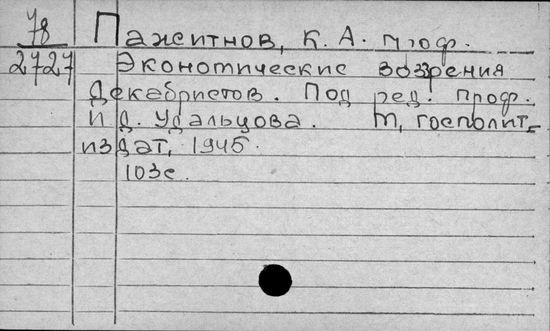 78 Пажитнов, К. А. проф.
2727 Экономические воззрения
декабристов. Под ред. проф.
И.Д. Удальцова. М, госполит-
издат, 1945.
103с.